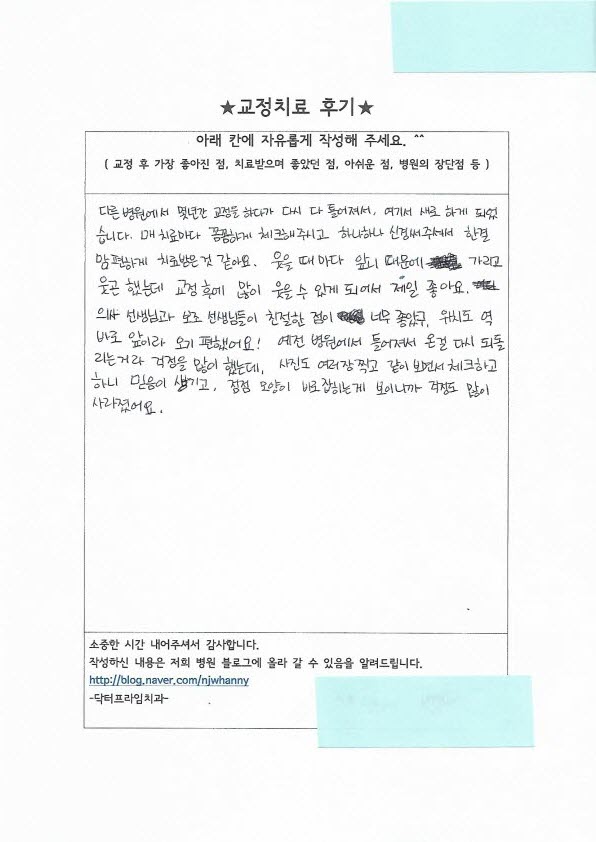 ★교정치료 후기★
아래 칸에 자유롭게 작성해 주세요. ^^
( 교정 후 가장 좋아진 점, 치료받으며 좋았던 점, 아쉬운 점, 병원의 장단점 등 )
다른 병원에서 몇년간 교정을 하다가 다시 다 틀어져서, 여기서 새로 하게 되었
습니다. 매 치료마다 꼼꼼하게 체크해주시고 하나하나 신경써주셔서 한결
맘 편하게 치료받은 것 같아요. 웃을 때마다 앞니 때문에 가리고
웃곤 했는데 교정 후에 많이 웃을 수 있게 되어서 제일 좋아요.
의사 선생님과 보조 선생님들이 친절한 점이 너무 좋았구, 위치도 역
바로 앞이라 오기 편했어요! 예전 병원에서 틀어져서 온걸 다시 되돌
리는거라 걱정을 많이 했는데, 사진도 여러장 찍고 같이 보면서 체크하고
하니 믿음이 생기고, 점점 모양이 바로잡히는게 보이니까 걱정도 많이
사라졌어요.
소중한 시간 내어주셔서 감사합니다.
작성하신 내용은 저희 병원 블로그에 올라 갈 수 있음을 알려드립니다.
http://blog.naver.com/njwhanny
-닥터프라임치과-